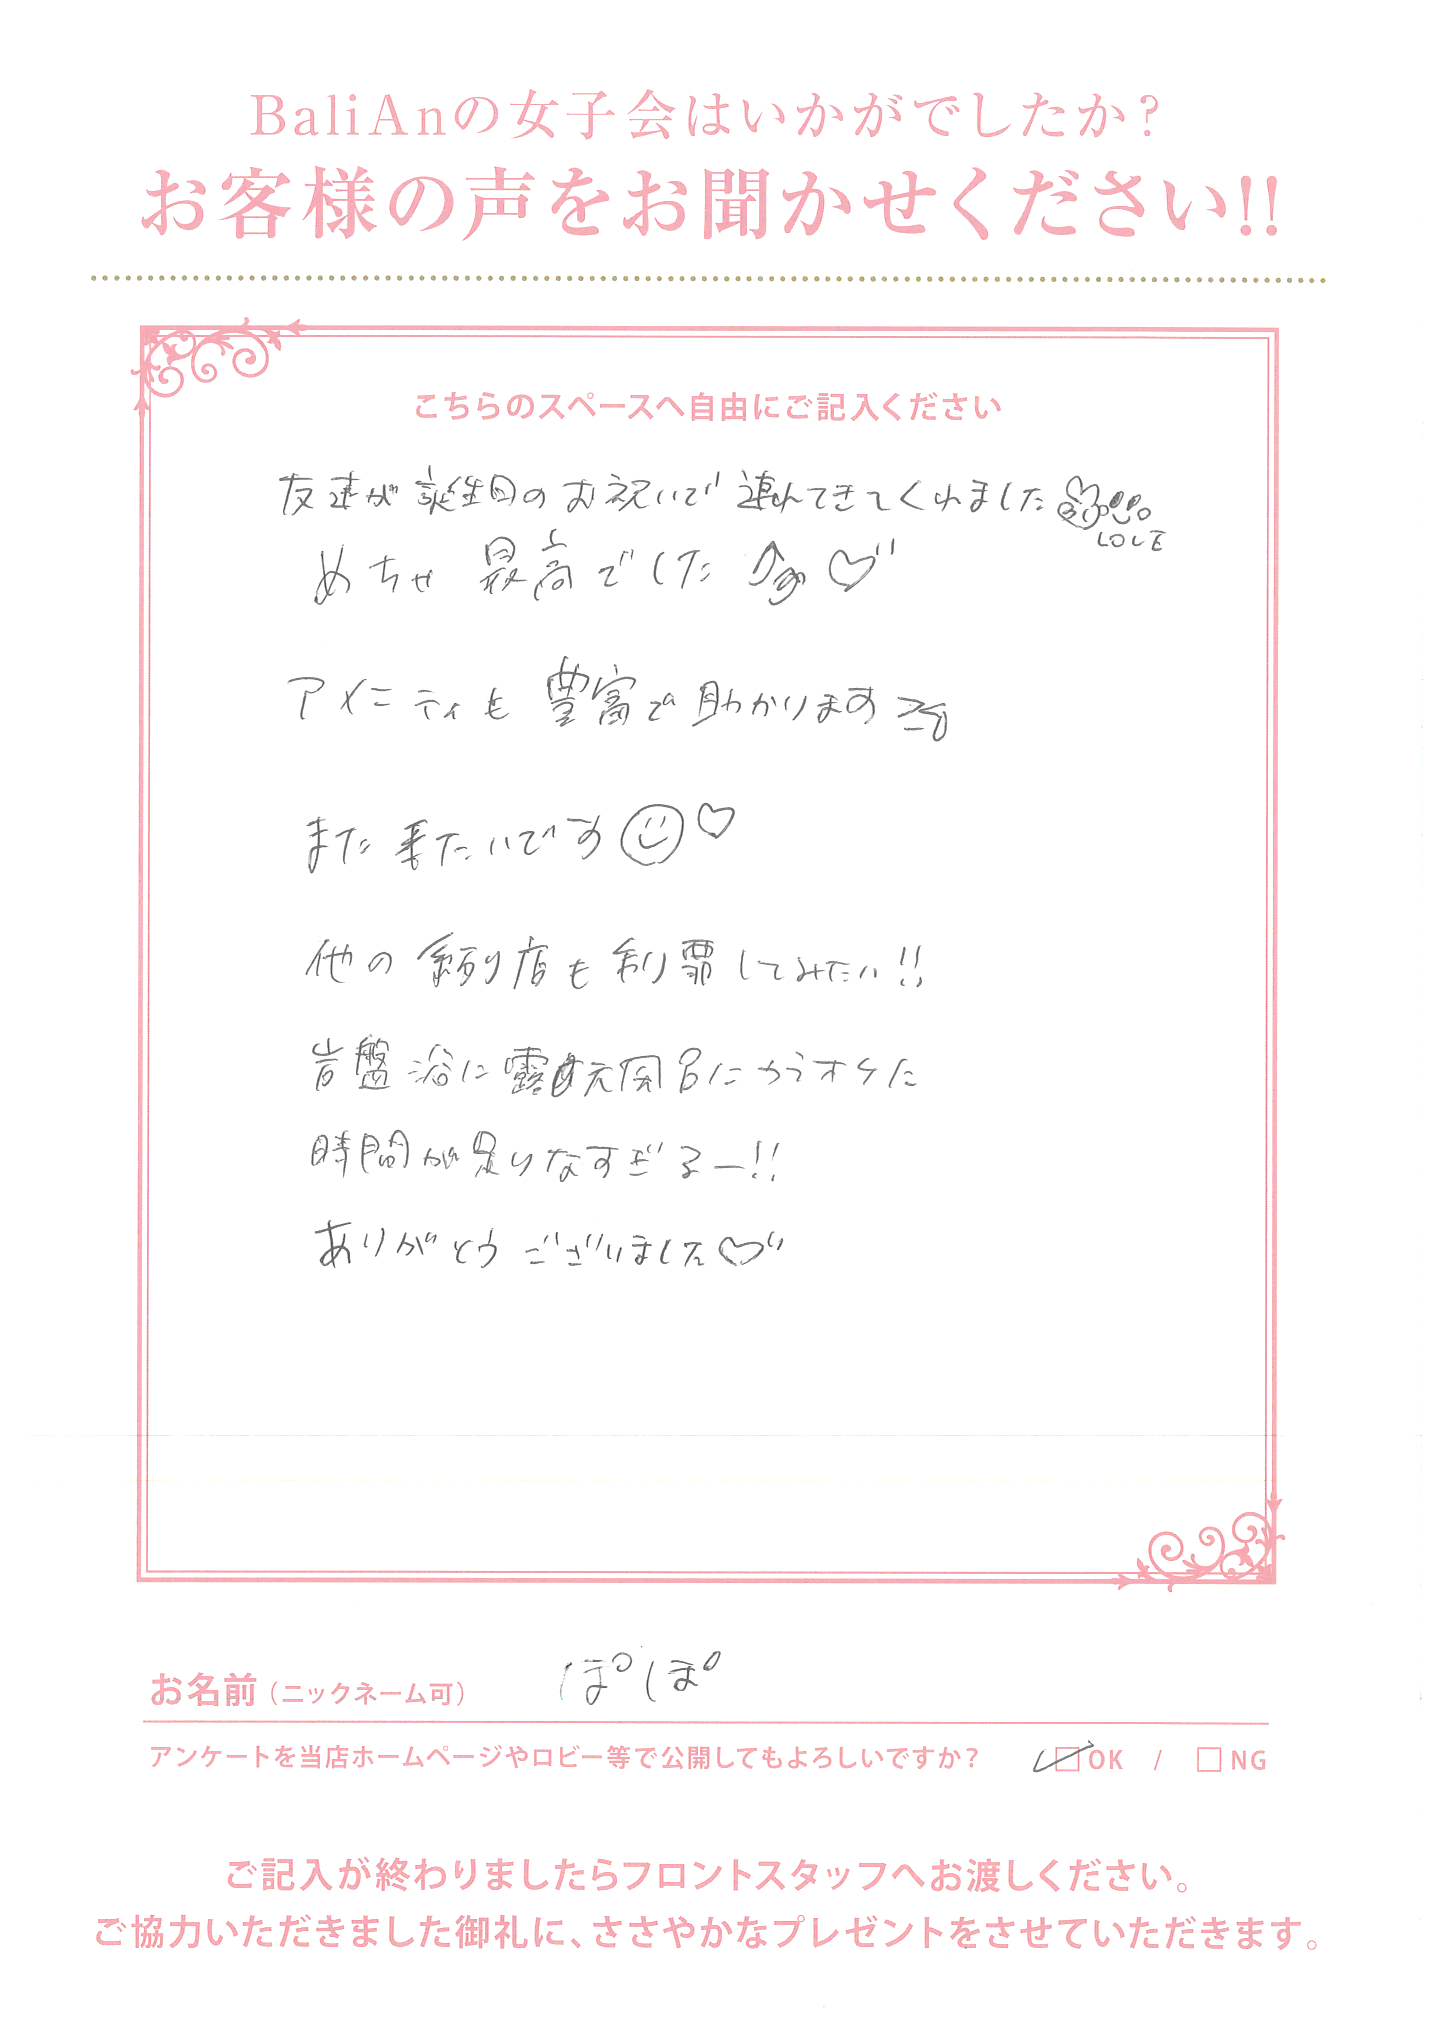 BaliAnの女子会はいかがでしたか?
お客様の声をお聞かせください!!
こちらのスペースへ自由にご記入ください
友達が誕生日のお祝いで連れてきてくれました
LOVE
めちゃ最高でした
アメニティも豊富で助かります
また来たいです
他の系列店も利用してみたい!!
岩盤浴に露天風呂にカラオケに
時間が足りなすぎるー!!
ありがとうございました
お名前(ニックネーム可) ぽぽ
アンケートを当店ホームページやロビー等で公開してもよろしいですか? OK / NG
ご記入が終わりましたらフロントスタッフへお渡しください。
ご協力いただきました御礼に、ささやかなプレゼントをさせていただきます。